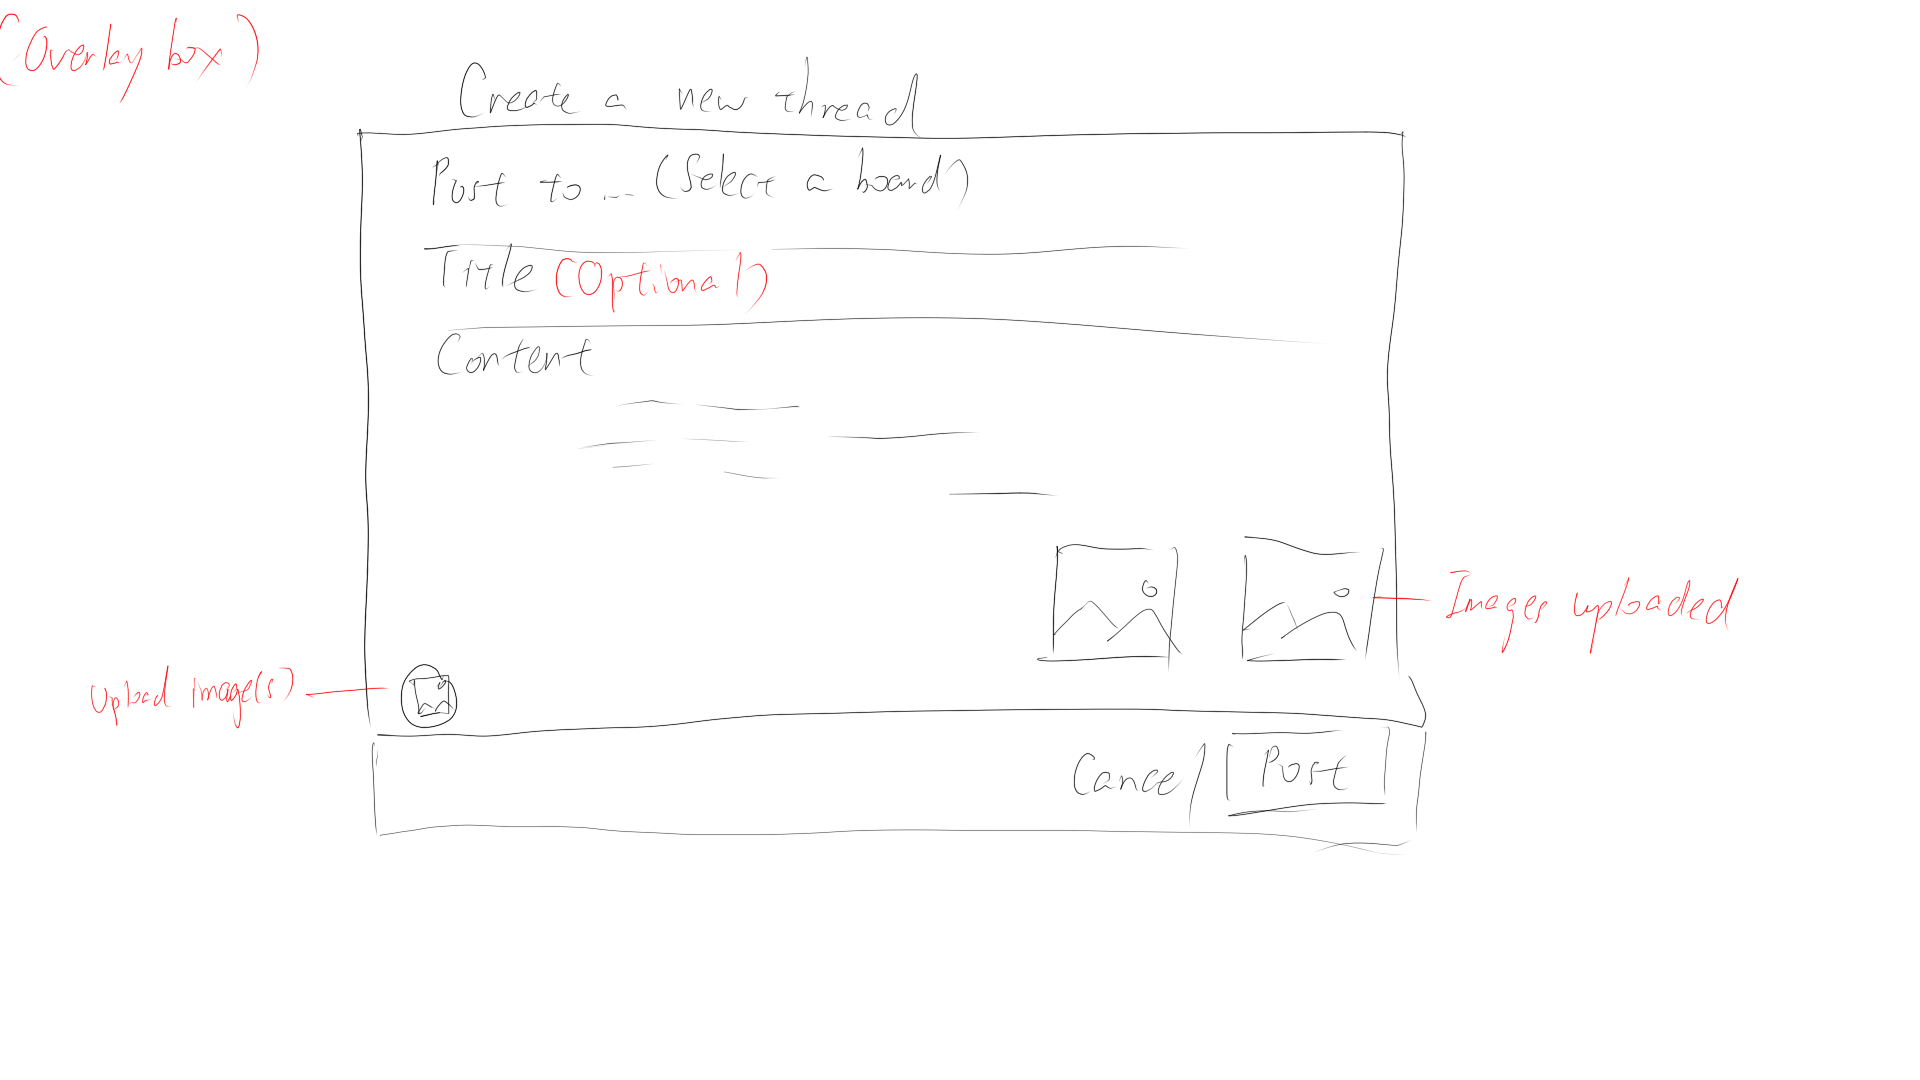 (Overlay box)
Create a new thread
Post to ... (Select a board)
Title (Optional)
Content
Images uploaded
Upload image(s)
Cancel
Post